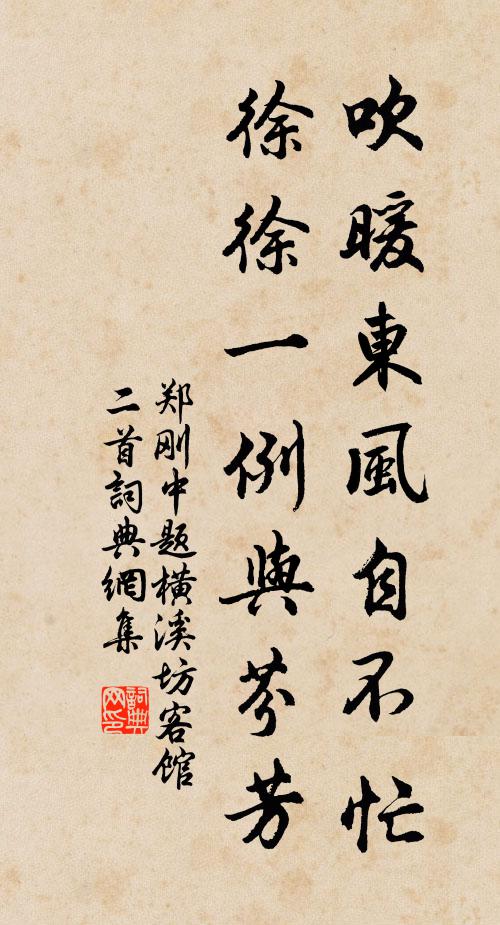 吹暖東風自不忙
徐徐一例與芬芳
郑刚中题橫溪坊客馆
二首詞典網集
詞典网印